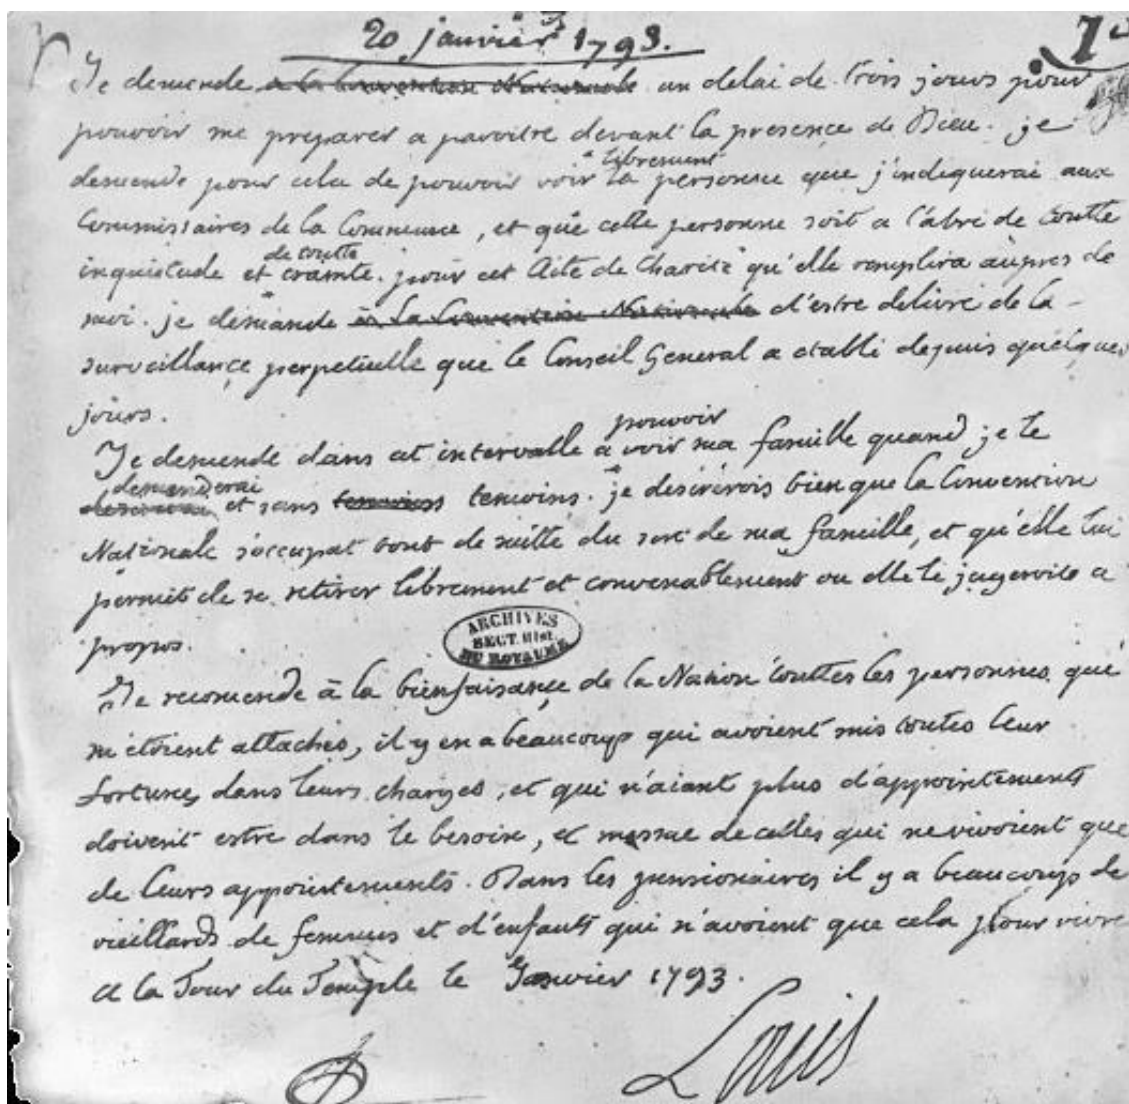 20 janvier 1793.
Je demende a la Convention Nationale un delai de trois jours pour
pouvoir me preparer a paroitre devant la presence de Dieu. je
librement
demende pour cela de pouvoir voir la personne que j'indiquerai aux
Commissaires de la Commune, et que cette personne soit a l'abri de toutte
de toutte
inquietude et crainte. pour cet Acte de Charité qu'elle remplira aupres de
moi. je demande à la Convention Nationale d'estre delivré de la
surveillance perpetuelle que le Conseil General a etabli depuis quelques
jours.
pouvoir
Je demende dans cet intervalle a voir ma famille quand je le
demenderai
et sans temoins temoins. je desirerois bien que la Convention
Nationale s'occupat tout de suitte du sort de ma famille, et qu'elle lui
permit de se retirer librement et convenablement ou elle le jugeroit a
propos.
ARCHIVES
SECT. Hist
DU ROYAUME
Je recomende à la bienfaisançe de la Nation touttes les personnes qui
m'etoient attachés, il y en a beaucoup qui avoient mis toutes leur
fortunes dans leurs charges, et qui n'aiant plus d'appointements
doivent estre dans le besoin, et mesme de celles qui ne vivoient que
de leurs appointements. Dans les pensionaires il y a beaucoup de
vieillards de femmes et d'enfants qui n'avoient que cela pour vivre
a la Tour du Temple le Janvier 1793.
Louis